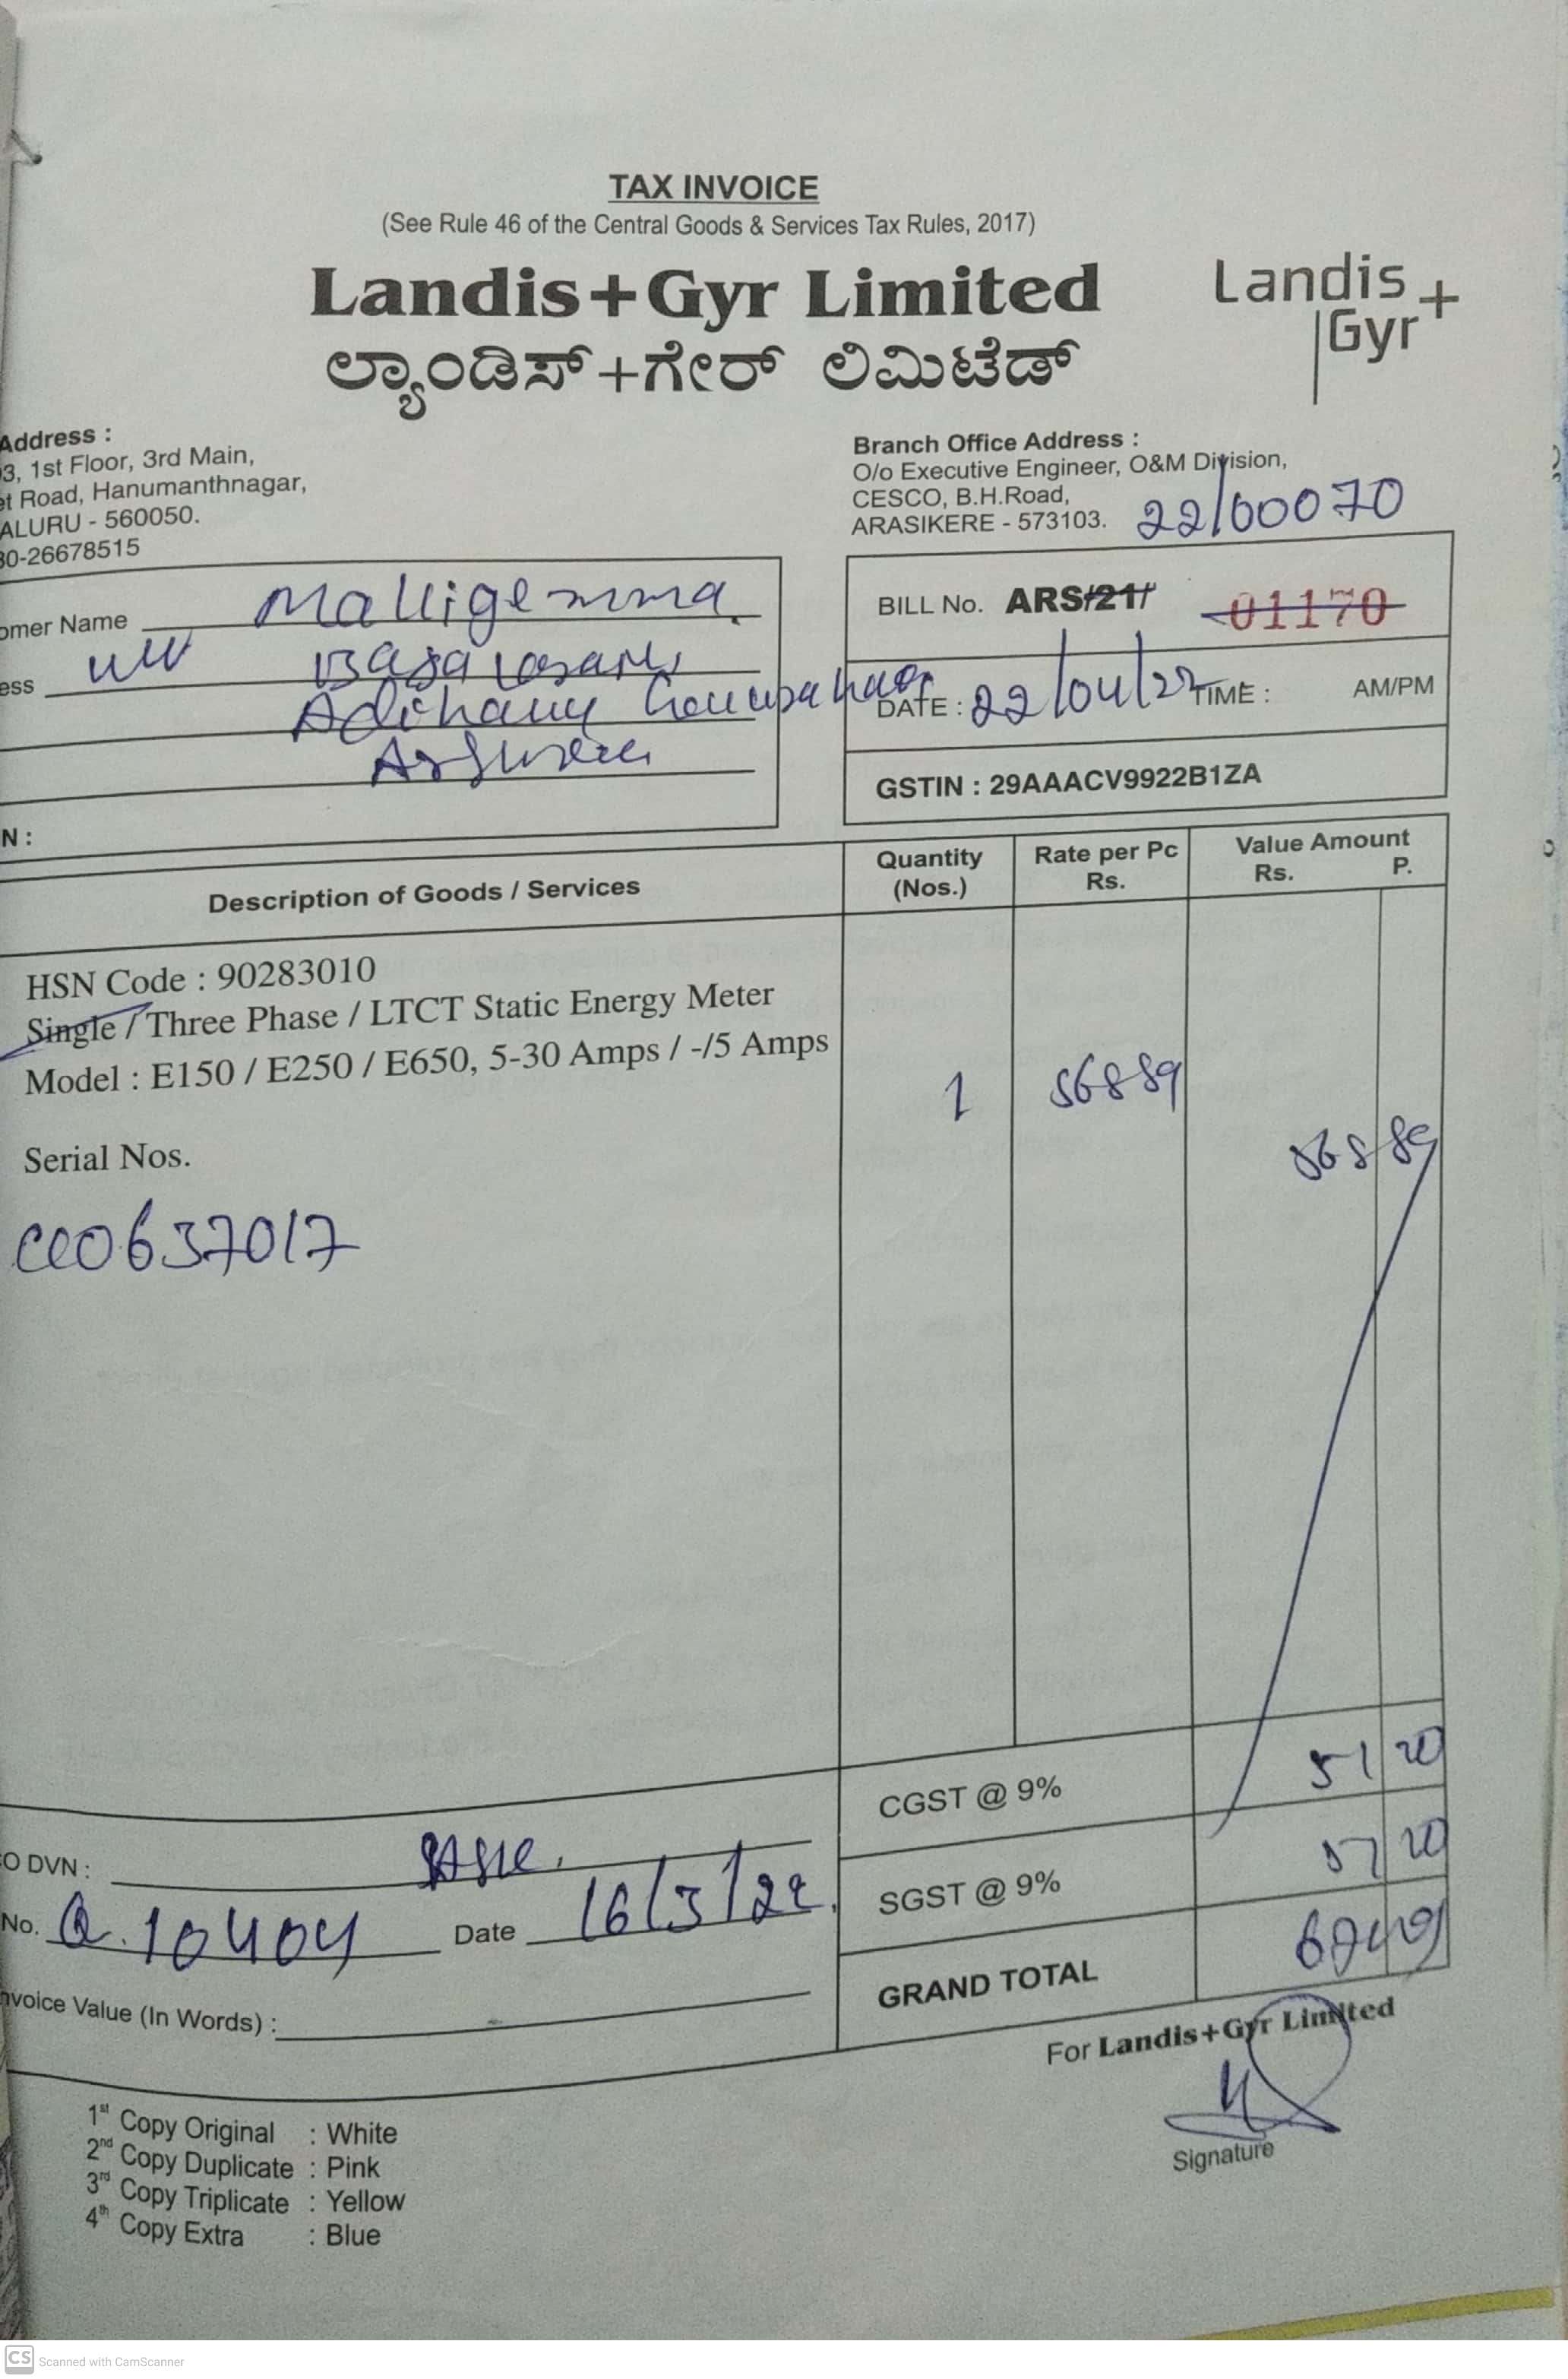 TAX INVOICE
(See Rule 46 of the Central Goods & Services Tax Rules, 2017)
Landis+Gyr Limited
ಲ್ಯಾಂಡಿಸ್+ಗೇರ್ ಲಿಮಿಟೆಡ್
Landis+
Gyr
Address :
3, 1st Floor, 3rd Main,
et Road, Hanumanthnagar,
ALURU - 560050.
30-26678515
Branch Office Address :
O/o Executive Engineer, O&M Division,
CESCO, B.H.Road,
ARASIKERE - 573103.
22/00070
omer Name Malligemma
ess
BILL No. ARS/21/ 01170
DATE : 22/04/22 TIME : AM/PM
GSTIN : 29AAACV9922B1ZA
N :
Description of Goods / Services
Quantity (Nos.)
Rate per Pc Rs.
Value Amount
Rs. P.
HSN Code : 90283010
Single / Three Phase / LTCT Static Energy Meter
Model : E150 / E250 / E650, 5-30 Amps / -/5 Amps
1 568 89
568 89
Serial Nos.
0637017
CGST @ 9% 51 20
SGST @ 9% 20
GRAND TOTAL
O DVN :
No. Q. 10404 Date 16/3/22
nvoice Value (In Words) :
For Landis+Gyr Limited
Signature
1st Copy Original : White
2nd Copy Duplicate : Pink
3rd Copy Triplicate : Yellow
4th Copy Extra : Blue
CS Scanned with CamScanner